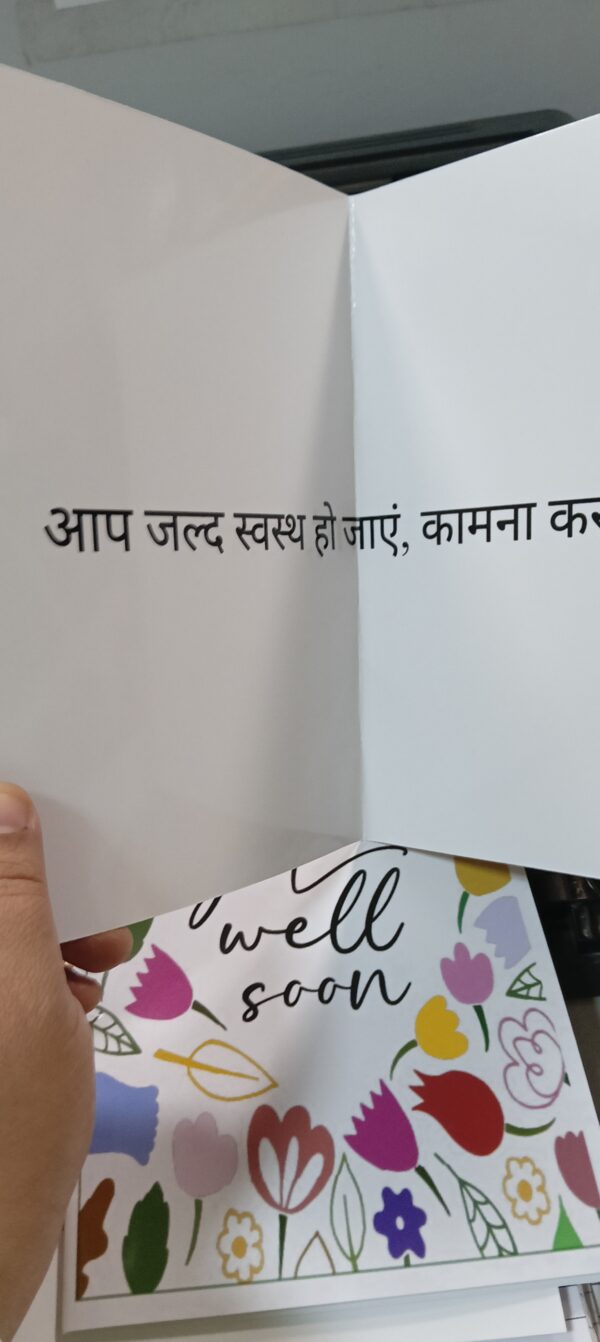 आप जल्द स्वस्थ हो जाएं, कामना
well
soon